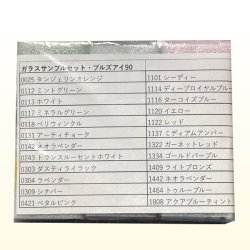 ガラスサンプルセット・ブルズアイ90
0025 タンジェリンオレンジ
0112 ミントグリーン
0113 ホワイト
0117 ミネラルグリーン
0118 ペリウィンクル
0131 アーティチョーク
0142 ネオラベンダー
0243 トランスルーセントホワイト
0303 ダスティライラック
0304 ラベンダー
0309 シナバー
0421 ペタルピンク
1101 シーディー
1114 ディープロイヤルブルー
1116 ターコイズブルー
1120 イエロー
1122 レッド
1137 ミディアムアンバー
1322 ガーネットレッド
1334 ゴールドパープル
1409 ライトブロンズ
1442 ネオラベンダー
1464 トゥルーブルー
1808 アクアブルーティント